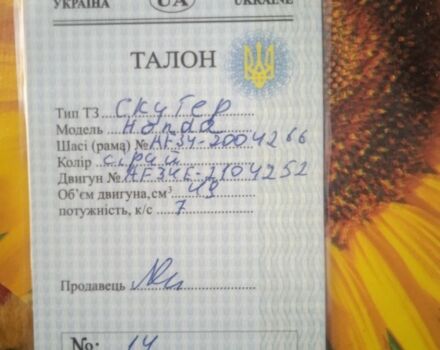 УКРАЇНА UA UKRAINE
ТАЛОН
Тип ТЗ Скутер
Модель Honda
Шасі (рама) № AF34-2004266
Колір сірий
Двигун № AF34E-2104252
Об'єм двигуна, см³ 49
потужність, к/с 7
Продавець
№: 14